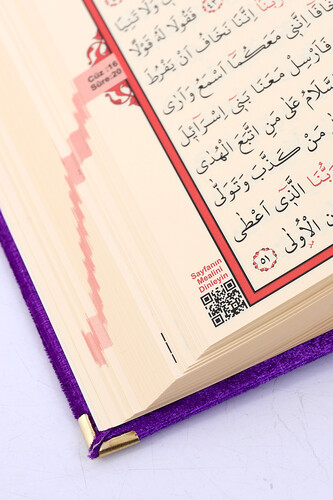 وَلَا تَنِيَا
فَقُولَا لَهُ قَوْلًا
رَبَّنَٓا اِنَّنَا نَخَافُ اَنْ يَفْرُطَ
تَخَافَٓا اِنَّنٖي مَعَكُمَٓا اَسْمَعُ وَاَرٰى
فَاَرْسِلْ مَعَنَا بَنٖٓي اِسْرَٓائٖلَ
عَلٰى مَنِ اتَّبَعَ الْهُدٰى
مَنْ كَذَّبَ وَتَوَلّٰى
رَبُّنَا الَّذٖٓي اَعْطٰى
الْاُولٰى ٥١
Cüz :16
Sûre:20
Sayfanın
Mealini
Dinleyin